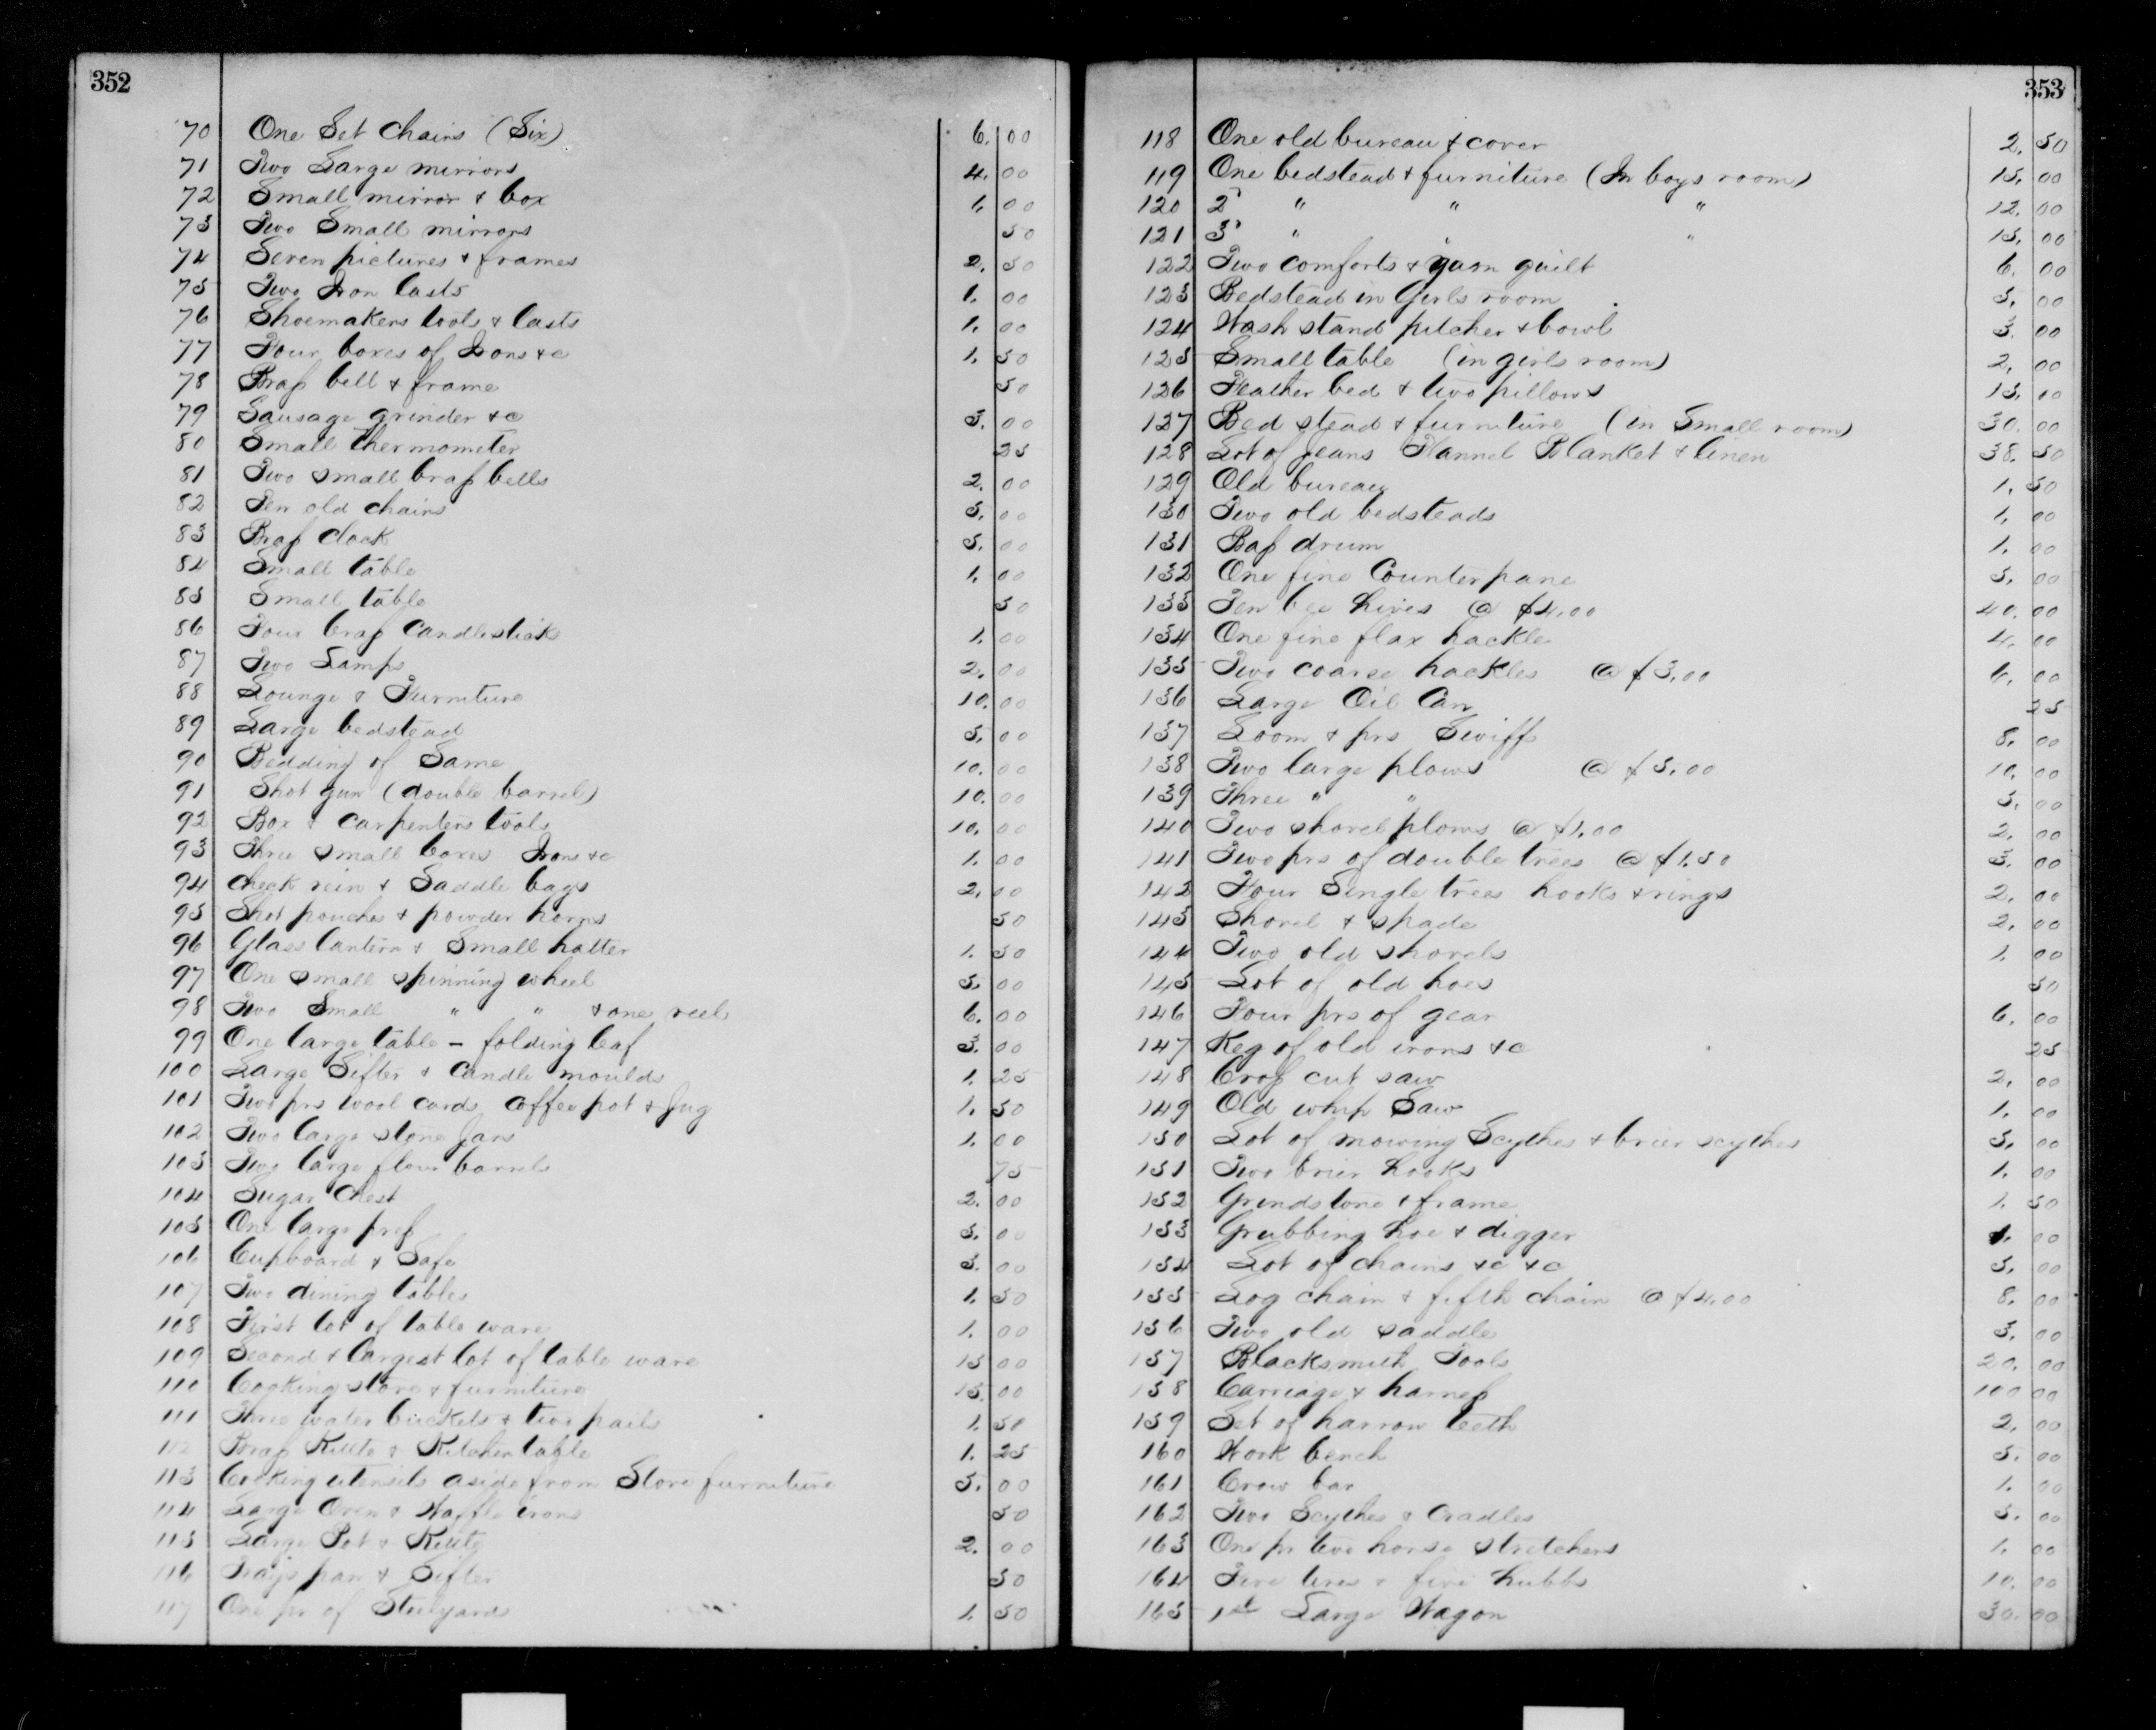 352
70 One Set Chairs (Six) 6. 00
71 Two Large mirrors 4. 00
72 Small mirror & box 1. 00
73 Two Small mirrors 50
74 Seven pictures & frames 2. 50
75 Two Iron lasts 1. 00
76 Shoemakers tools & lasts 1. 00
77 Four boxes of Irons &c 1. 50
78 Brass bell & frame 50
79 Sausage grinder &c 5. 00
80 Small thermometer 25
81 Two small brass bells 2. 00
82 Ten old chairs 5. 00
83 Brass Clock 5. 00
84 Small table 1. 00
85 Small table 50
86 Four brass Candlesticks 1. 00
87 Two Lamps 2. 00
88 Lounge & Furniture 10. 00
89 Large bedstead 5. 00
90 Bedding of Same 10. 00
91 Shot gun (double barrel) 10. 00
92 Box & carpenters tools 10. 00
93 Three small boxes Irons &c 1. 00
94 Check rein & Saddle bags 2. 00
95 Shot pouches & powder horns 50
96 Glass lantern & Small hatter 1. 50
97 One small spinning wheel 5. 00
98 Two Small " " & one reel 6. 00
99 One large table - folding leaf 3. 00
100 Large Sifter & Candle moulds 1. 25
101 Two prs wool cards coffee pot & Jug 1. 50
102 Two large stone Jars 1. 00
103 Two large flour barrels 75
104 Sugar Chest 2. 00
105 One large press 5. 00
106 Cupboard & Safe 3. 00
107 Two dining tables 1. 50
108 First lot of table ware 1. 00
109 Second & largest lot of table ware 15 00
110 Cooking stove & furniture 15. 00
111 Three water buckets & two pails 1. 50
112 Brass Kettle & Kitchen table 1. 25
113 Cooking utensils aside from Stove furniture 5. 00
114 Large Oven & Waffle irons 50
115 Large Pot & Kettle 2. 00
116 pan & Sifter 50
117 One pr of Steelyards 1. 50
353
118 One old bureau & cover 2. 50
119 One bedstead & furniture (In boys room) 15. 00
120 2d " " " 12. 00
121 3d " " " 15. 00
122 Two comforts & yarn quilt 6. 00
123 Bedstead in Girls room 5. 00
124 Wash stand pitcher & bowl 3. 00
125 Small table (in girls room) 2. 00
126 Feather bed & two pillows 15. 00
127 Bed stead & furniture (in Small room) 30. 00
128 Lot of Jeans Flannel Blanket & linen 38. 50
129 Old bureau 1. 50
130 Two old bedsteads 1. 00
131 Bass drum 1. 00
132 One fine Counterpane 5. 00
133 Ten bee hives @ $4.00 40. 00
134 One fine flax hackle 4. 00
135 Two coarse hackles @ $3.00 6. 00
136 Large Oil Can 25
137 Loom & prs 8. 00
138 Two large plows @ $5.00 10. 00
139 Three " " 5. 00
140 Two shovel plows @ $1.00 2. 00
141 Two prs of double trees @ $1.50 3. 00
142 Four Single trees hooks & rings 2. 00
143 Shovel & spade 2. 00
144 Two old shovels 1. 00
145 Lot of old hoes 50
146 Four prs of gear 6. 00
147 Keg of old irons &c 25
148 Cross cut saw 2. 00
149 Old whip Saw 1. 00
150 Lot of mowing Scythes & brier scythes 5. 00
151 Two brier hooks 1. 00
152 Grindstone & frame 1. 50
153 Grubbing hoe & digger 1. 00
154 Lot of chains &c &c 5. 00
155 Log chain & fifth chain @ $4.00 8. 00
156 Two old saddle 3. 00
157 Blacksmith Tools 20. 00
158 Carriage & harness 100 00
159 Set of harrow teeth 2. 00
160 Work bench 5. 00
161 Crow bar 1. 00
162 Two Scythes & Cradles 5. 00
163 One pr two horse stretchers 1. 00
164 Five tires & five hubbs 10. 00
165 1st Large Wagon 30. 00